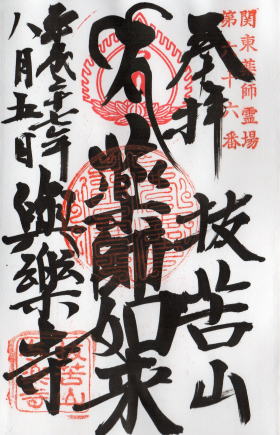 関東薬師霊場
奉拝
抜苦山
薬師如来
平成二十七年
八月五日
與樂寺